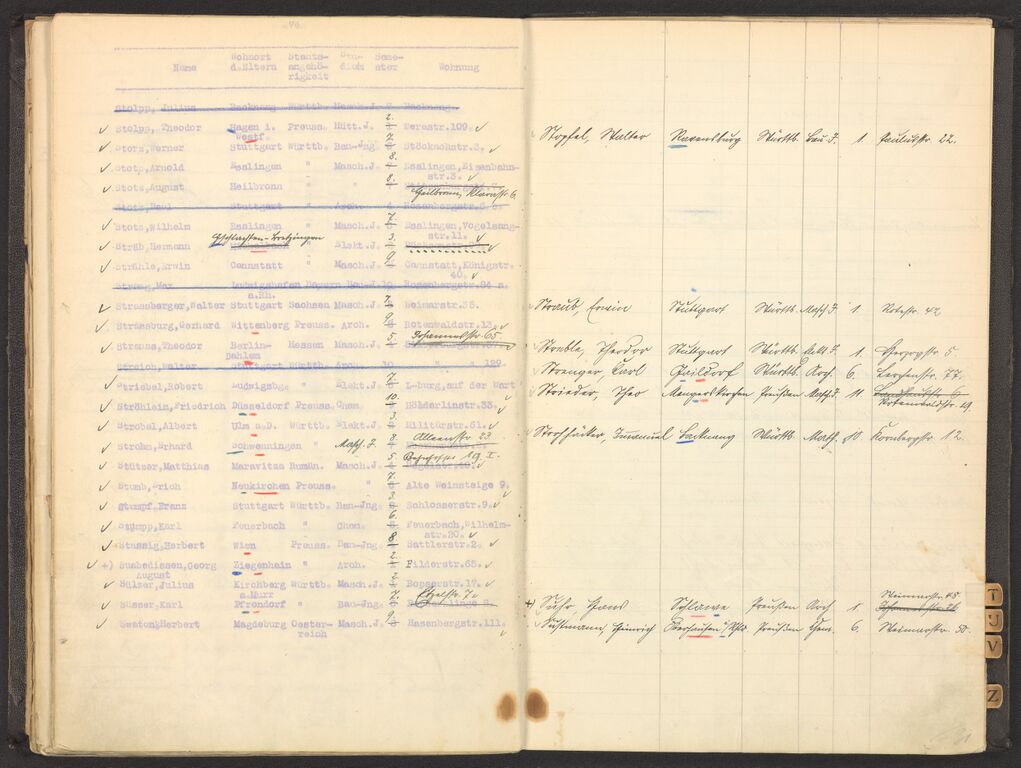 Name Wohnort d.Eltern Staats-angehö-rigkeit Stu-dium Seme-ster Wohnung
Stolpp, Julius Backnang Württb. Masch.J. Backnang.
Stolpp, Theodor Hagen i. Preuss. Hütt.J. 2. Werastr.109.
Westf.
Storz, Werner Stuttgart Württb. Bau-Jng. 7. Stöcknachstr.3.
Stotz, Arnold Esslingen " Masch.J. 8. Esslingen, Eisenbahn-
str.3.
Stotz, August Heilbronn " " 8. Heilbronn, Klarastr. 6
Stotz, Paul Stuttgart " Arch. Rosenbergstr.
Stotz, Wilhelm Esslingen " Masch.J. 7. Esslingen, Vogelsang-
str.11.
Sträb, Hermann Elekt.J. 3.
Strähle, Erwin Cannstatt " Masch.J. 9. Cannstatt, Königstr.
40.
Strang, Max Ludwigshafen Bayern Bau-J. 10 Rosenbergstr.94 a.
a.Rh.
Strassberger, Walter Stuttgart Sachsen Masch.J. 7. Weimarstr.35.
Strassburg, Gerhard Wittenberg Preuss. Arch. 9. Rotenwaldstr.13.
Strauss, Theodor Berlin- Hessen Masch.J. 5. Johannesstr. 65.
Dahlem
Streich, Walter Stuttgart Württb. Arch. 10 " 129
Striebel, Robert Ludwigsbg. " Elekt.J. 7. L-burg, auf der Wart
Ströhlein, Friedrich Düsseldorf Preuss. Chem. 10. Hölderlinstr.33.
Strobel, Albert Ulm a.D. Württb. Elekt.J. 3. Militärstr.61.
Strohm, Erhard Schwenningen " Masch. J. 8. Alleenstr. 23
Stützer, Matthias Maravitza Rumän. Masch.J. 5. 19 I.
Stumb, Erich Neukirchen Preuss. " 7. Alte Weinsteige 9.
Stumpf, Franz Stuttgart Württb. Bau-Jng. 3. Schlosserstr.9.
Stumpp, Karl Feuerbach " Chem. 6. Feuerbach, Wilhelm-
str.20.
Stussig, Herbert Wien Preuss. Bau-Jng. Sattlerstr.2.
+) Suabedissen, Georg Ziegenhain " Arch. 2. Filderstr.65.
August
Sülzer, Julius Kirchberg Württb. Masch.J. 2. Bopserstr.17.
a.Murr
Süsser, Karl Pfrondorf " Bau-Jng. 7. Etzelstr. 7
Swaton, Herbert Magdeburg Oester- Masch.J. 9. Hasenbergstr.111.
reich
Stopfel, Walter Ravensburg Württb. Bau-J. 1. Paulusstr. 22.
Straub, Erwin Stuttgart Württb. Masch.J. 1 Rotestr. 42
Streble, Theodor Stuttgart Württb. 1. Herzogstr. 5
Strenger Carl Gaildorf Württb. Arch. 6. Lerchenstr. 77.
Strieder, Theo Mengerskirchen Preußen Masch.J. 11
Rotenwaldstr. 19.
Strohhäcker, Immanuel Backnang Württb. Math. 10 Kornbergstr. 12.
Weimarstr. 45
+) Suhr, Hans Schlawe Preußen Arch 1.
Sustmann, Heinrich Oberhausen Preußen Chem. 6. Weimarstr. 30.
T
U
V
Z